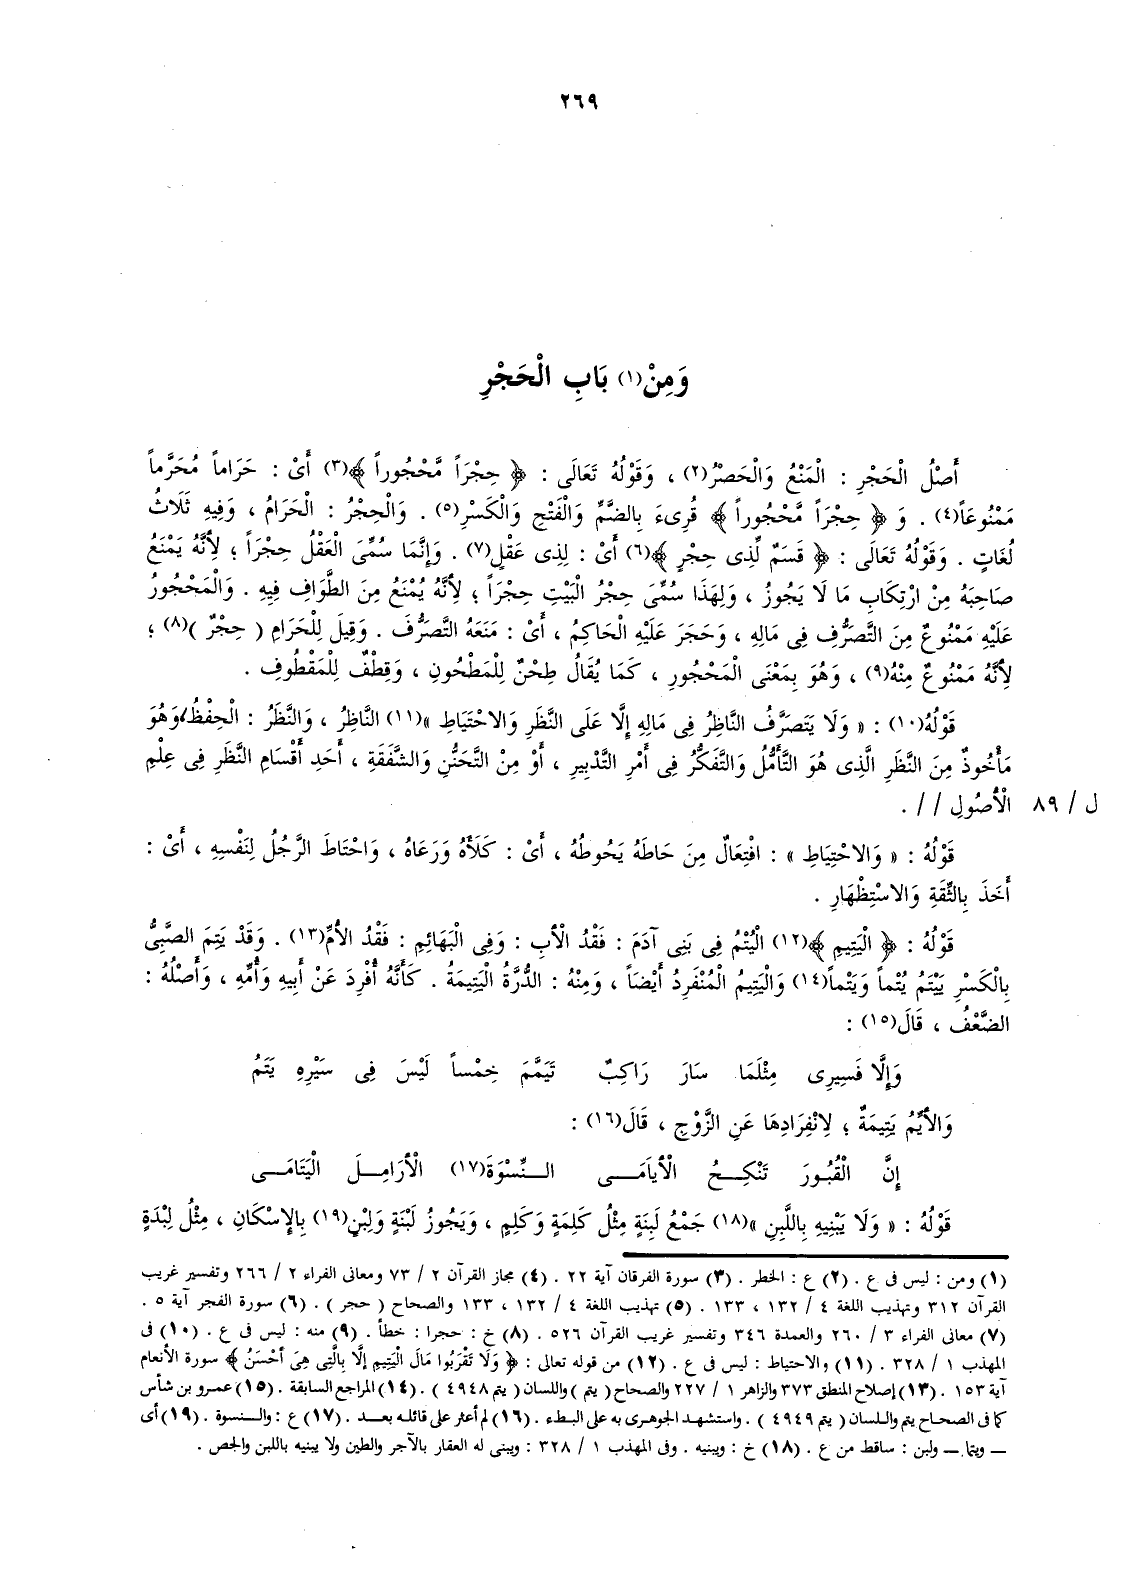 ٢٦٩
وَمِنْ(١) بَابِ الْحَجْرِ
أَصْلُ الْحَجْرِ : الْمَنْعُ وَالْحَصْرُ(٢) ، وَقَوْلُهُ تَعَالَى : ﴿ حِجْرَاً مَّحْجُوراً ﴾(٣) أَىْ : حَرَاماً مُحَرَّماً
مَمْنُوعَاً(٤) . وَ ﴿ حِجْرَاً مَّحْجُوراً ﴾ قُرِىءَ بِالضَّمِّ وَالْفَتْحِ وَالْكَسْرِ(٥) . وَالْحِجْرُ : الْحَرَامُ ، وَفِيهِ ثَلَاثُ
لُغَاتٍ . وَقَوْلُهُ تَعَالَى : ﴿ قَسَمٌ لِّذِى حِجْرٍ ﴾(٦) أَىْ : لِذِى عَقْلٍ(٧) . وَإِنَّمَا سُمِّىَ الْعَقْلُ حِجْرَاً ؛ لِأَنَّهُ يَمْنَعُ
صَاحِبَهُ مِنْ ارْتِكَابِ مَا لَا يَجُوزُ ، وَلِهَذَا سُمِّىَ حِجْرُ الْبَيْتِ حِجْراً ؛ لِأَنَّهُ يُمْنَعُ مِنَ الطَّوَافِ فِيهِ . وَالْمَحْجُورُ
عَلَيْهِ مَمْنُوعٌ مِنَ التَّصَرُّفِ فِى مَالِهِ ، وَحَجَرَ عَلَيْهِ الْحَاكِمُ ، أَىْ : مَنَعَهُ التَّصَرُّفَ . وَقِيلَ لِلْحَرَامِ ( حِجْرٌ )(٨) ؛
لِأَنَّهُ مَمْنُوعٌ مِنْهُ(٩) ، وَهُوَ بِمَعْنَى الْمَحْجُورِ ، كَمَا يُقَالُ طِحْنٌ لِلْمَطْحُونِ ، وَقِطْفٌ لِلْمَقْطُوفِ .
قَوْلُهُ(١٠) : « وَلَا يَتَصَرَّفُ النَّاظِرُ فِى مَالِهِ إِلَّا عَلَى النَّظَرِ وَالاحْتِيَاطِ »(١١) النَّاظِرُ ، وَالنَّظَرُ : الْحِفْظُ ، وَهُوَ
مَأْخُوذٌ مِنَ النَّظَرِ الَّذِى هُوَ التَّأَمُّلُ وَالتَّفَكُّرُ فِى أَمْرِ التَّدْبِيرِ ، أَوْ مِنْ التَّحَنُّنِ وَالشَّفَقَةِ ، أَحَدِ أَقْسَامِ النَّظَرِ فِى عِلْمِ
ل / ٨٩ الْأُصُولِ / / .
قَوْلُهُ : « وَالاحْتِيَاطِ » : افْتِعَالٌ مِنَ حَاطَهُ يَحُوطُهُ ، أَىْ : كَلَأَهُ وَرَعَاهُ ، وَاحْتَاطَ الرَّجُلُ لِنَفْسِهِ ، أَىْ :
أَخَذَ بِالثِّقَةِ وَالاسْتِظْهَارِ .
قَوْلُهُ : ﴿ الْيَتِيمِ ﴾(١٢) الْيُتْمُ فِى بَنِى آدَمَ : فَقْدُ الْأَبِ : وَفِى الْبَهَائِمِ : فَقْدُ الأُمِّ(١٣) . وَقَدْ يَتِمَ الصَّبِىُّ
بِالْكَسْرِ يَيْتَمُ يُتْماً وَيَتْماً(١٤) وَالْيَتِيمُ الْمُنْفَرِدُ أَيْضَاً ، وَمِنْهُ : الدُّرَّةُ الْيَتِيمَةُ . كَأَنَّهُ أُفْرِدَ عَنْ أَبِيهِ وَأُمِّهِ ، وَأَصْلُهُ :
الضَّعْفُ ، قَالَ(١٥) :
وَإِلَّا فَسِيرِى مِثْلَمَا سَارَ رَاكِبٌ تَيَمَّمَ خِمْساً لَيْسَ فِى سَيْرِهِ يَتَمُ
وَالأَيِّمُ يَتِيمَةٌ ؛ لِانْفِرَادِهَا عَنِ الزَّوْجِ ، قَالَ(١٦) :
إِنَّ الْقُبُورَ تَنْكِحُ الْأَيَامَى النِّسْوَةَ(١٧) الْأَرَامِلَ الْيَتَامَى
قَوْلُهُ : « وَلَا يَبْنِيهِ بِاللَّبِنِ »(١٨) جَمْعُ لَبِنَةٍ مِثْلُ كَلِمَةٍ وَكَلِمٍ ، وَيَجُوزُ لَبْنَةٍ وَلِبْنٍ(١٩) بِالإِسْكَانِ ، مِثْلُ لِبْدَةٍ
(١) ومن : ليس فى ع . (٢) ع : الخطر . (٣) سورة الفرقان آية ٢٢ . (٤) مجاز القرآن ٢ / ٧٣ ومعانى الفراء ٢ / ٢٦٦ وتفسير غريب
القرآن ٣١٢ وتهذيب اللغة ٤ / ١٣٢ ، ١٣٣ . (٥) تهذيب اللغة ٤ / ١٣٢ ، ١٣٣ والصحاح ( حجر ) . (٦) سورة الفجر آية ٥ .
(٧) معانى الفراء ٣ / ٢٦٠ والعمدة ٣٤٦ وتفسير غريب القرآن ٥٢٦ . (٨) خ : حجرا : خطأ . (٩) منه : ليس فى ع . (١٠) فى
المهذب ١ / ٣٢٨ . (١١) والاحتياط : ليس فى ع . (١٢) من قوله تعالى : ﴿ وَلَا تَقْرَبُوا مَالَ الْيَتِيمِ إِلَّا بِالَّتِى هِىَ أَحْسَنُ ﴾ سورة الأنعام
آية ١٥٣ . (١٣) إصلاح المنطق ٣٧٣ والزاهر ١ / ٢٢٧ والصحاح ( يتم ) واللسان ( يتم ٤٩٤٨ ) . (١٤) المراجع السابقة . (١٥) عمرو بن شأس
كما فى الصحاح يتم واللسان ( يتم ٤٩٤٩ ) . واستشهد الجوهرى به على البطء . (١٦) لم أعثر على قائله بعد . (١٧) ع : والنسوة . (١٩) أى
— ويتما — ولبن : ساقط من ع . (١٨) خ : ويبنيه . وفى المهذب ١ / ٣٢٨ : ويبنى له العقار بالآجر والطين ولا يبنيه باللبن والجص .